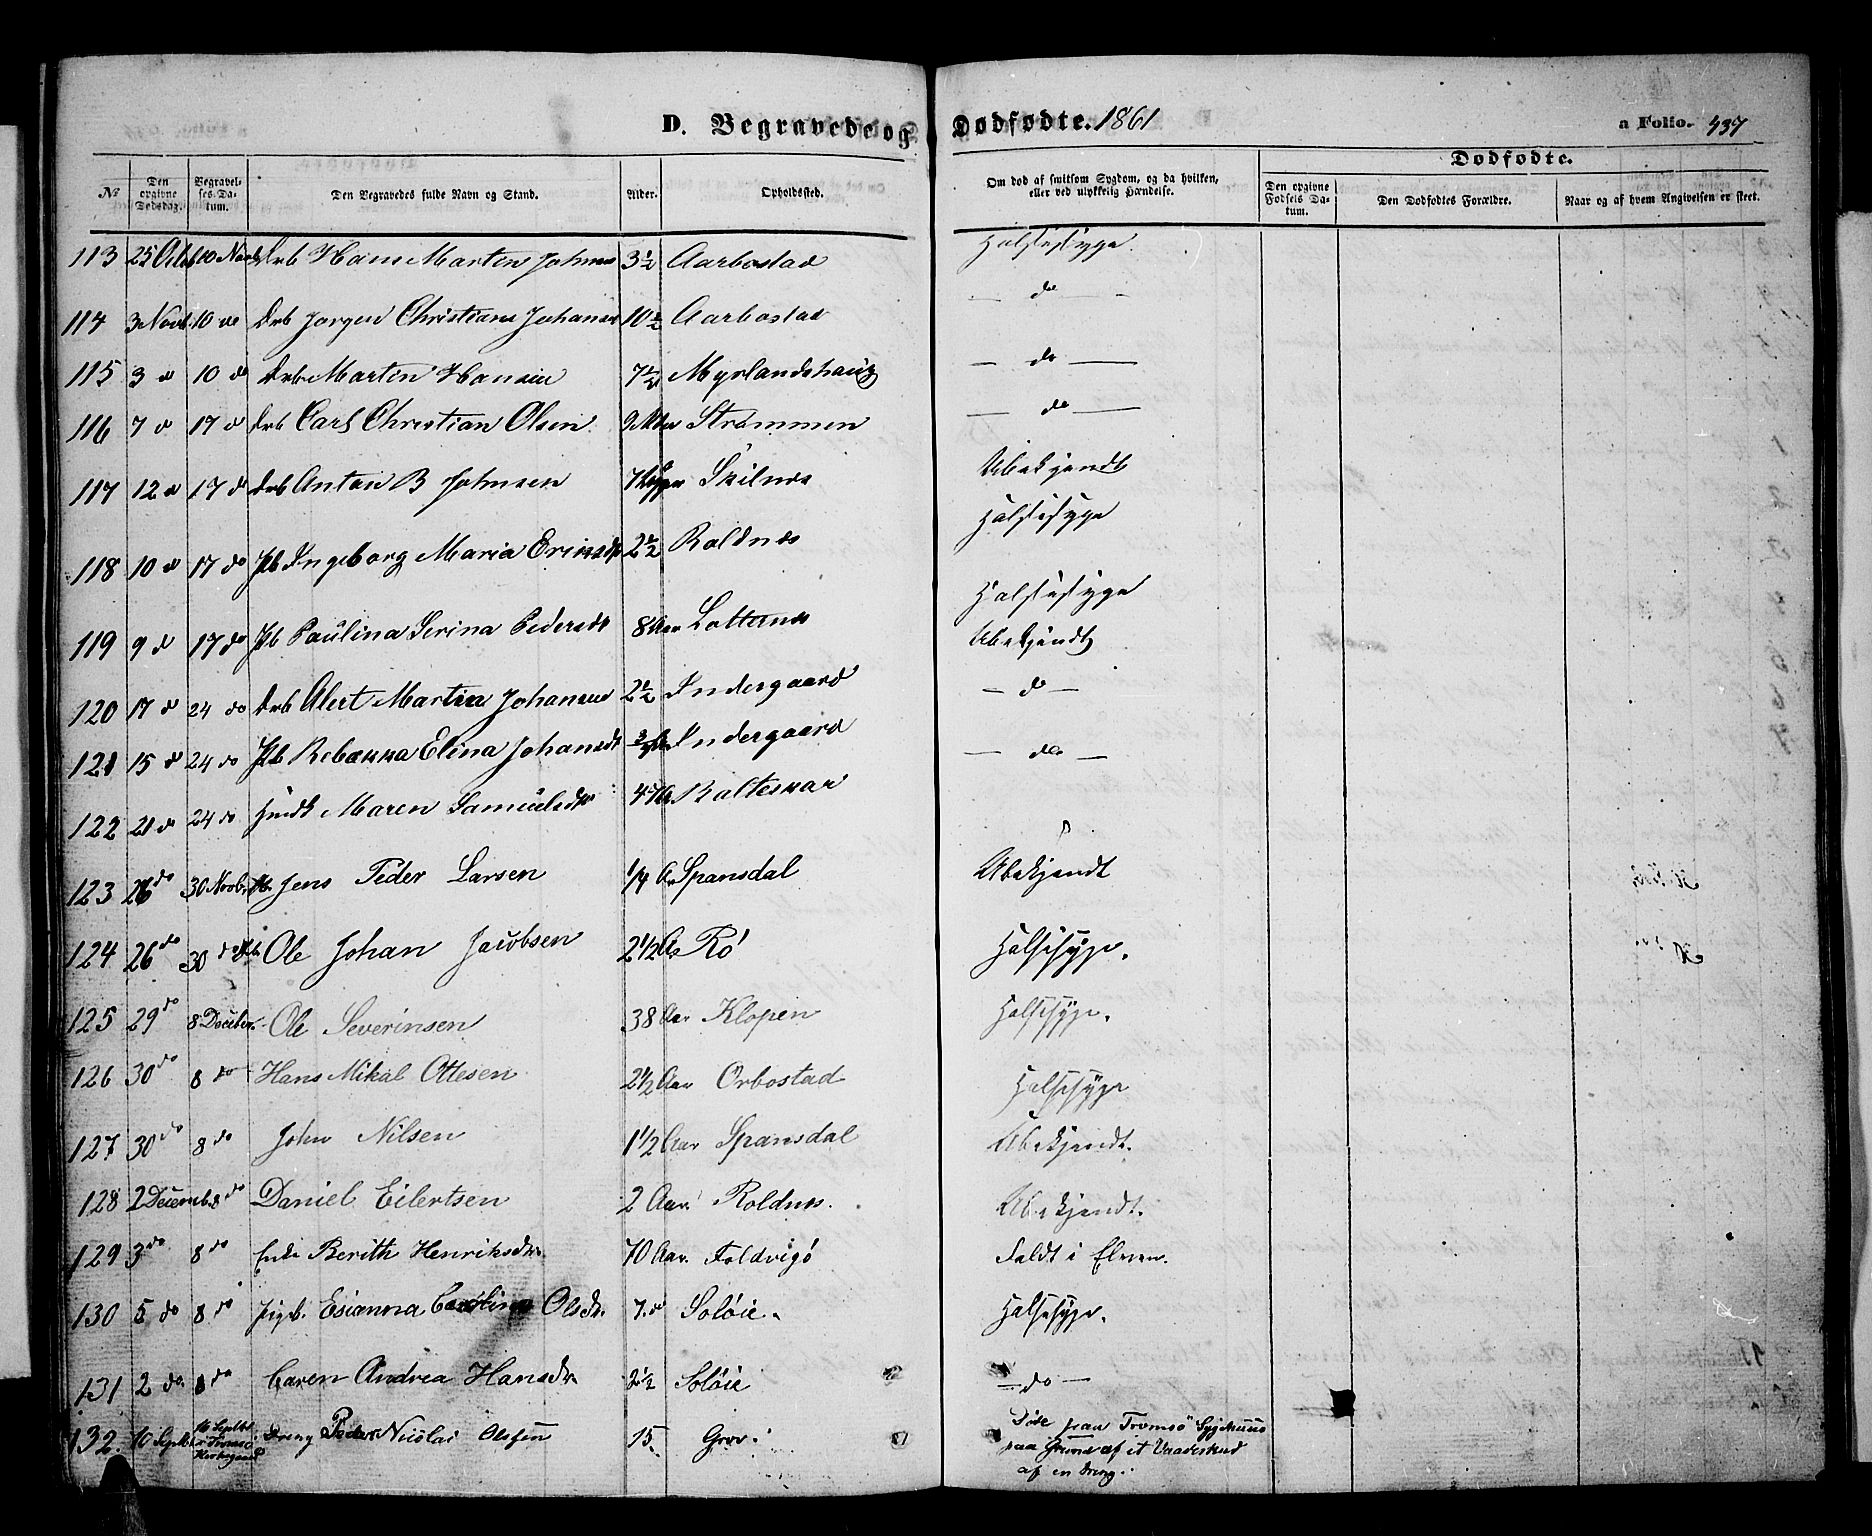 D. Begravede og Dødfødte. 1861
a Folio. 437
Dødfødte.
No
Den opgivne Dødsdag.
Begravelses-Datum.
Den Begravedes fulde Navn og Stand.
Alder.
Opholdssted.
Om død af smitsom Sygdom, og da hvilken, eller ved ulykkelig Hændelse.
Den opgivne Fødsels Datum.
Den Dødfødtes Forældre.
Naar og af hvem Angivelsen er skeet.
113 25 Octb 10 Novb Drb Hans Martin Johns 3 1/2 Aarbostad Halsesyge.
114 3 Novb. 10 do Drb Jørgen Christians Johans 10 1/2 Aarbostad — do —
115 3 d 10 do Drb Martin Hansen 7 1/2 Myrlandshaug — do —
116 7 d 17 d Drb Carl Christian Olsen 9 Strømmen — do —
117 12 d 17 d Drb Anton B Johnsen 7 Skilnes Ubekjendt
118 10 d 17 do Pb Ingeborg Maria Eriksdr 2 1/2 Roldnes Halsesyge
119 9 d 17 do Pb Paulina Serina Pedersdr 8 Aar Halsesyge
Ubekjendt
120 17 d 24 do Drb Alert Martin Johansen 2 1/2 Indergaard — d —
121 15 d 24 do Pb Rebækka Elina Johansdr 3/4 Indergaard — do —
122 21 do 24 do Maren Samuelsdr 47 Kalteskar
123 26 do 30 Novbr Jens Peder Larsen 1/4 A Spansdal Ubekjendt
124 26 do 30 do Drb Ole Johan Jacobsen 2 1/2 Aa Rø Halsesyge.
125 29 do 8 Decbr. Ole Severinsen 38 Aar Klopen Halsesyge.
126 30 do 8 do Hans Mikal Ottesen 2 1/2 Aar Ørbostad Halsesyge
127 30 do 8 do John Nilsen 1 1/2 Aar Spansdal Ubekjendt.
128 2 Decemb. 8 do Daniel Eilertsen 2 Aar Roldnes. Ubekjendt.
129 3 do 8 do Enke Berith Henriksdr. 70 Aar. Foldvigø Faldt i Elven.
130 5 do 8 do Pigb. Esianna Carolina Olsdr. 7. d Soløie. Halsesyge.
131 2 do 8 do Caren Andrea Hansdr. 2 1/2 Soløie — do —
132. 10 Septbr 16 Septbr i Tromsø Kirkegaard Dreng Peder Nicolai Olssen 15. Grov. Døde paa Tromsø Sygehuus
paa Grund af et Vaadeskud
af en Dreng.